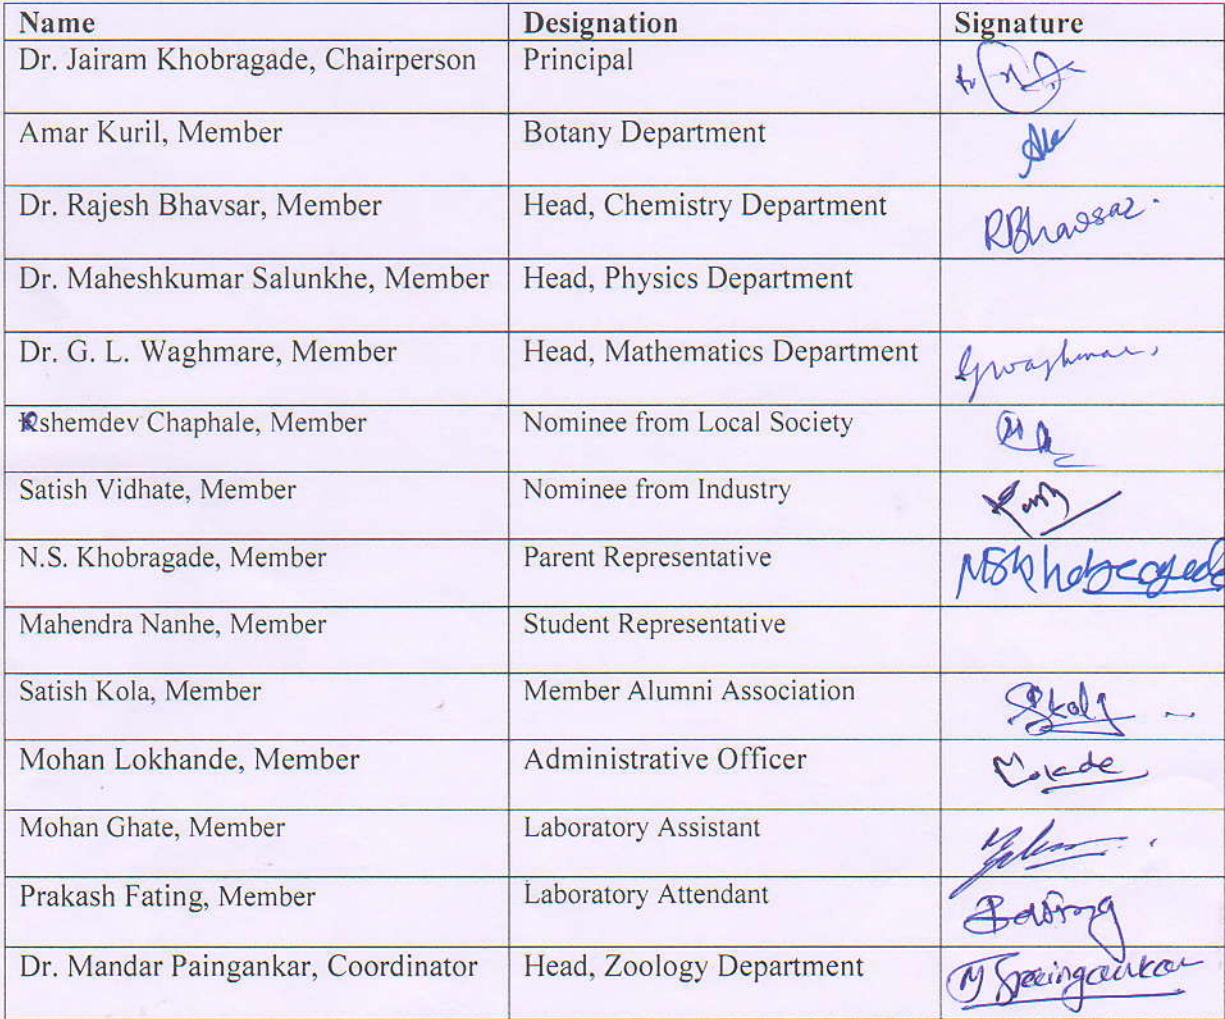 Name Designation Signature
Dr. Jairam Khobragade, Chairperson Principal
Amar Kuril, Member Botany Department
Dr. Rajesh Bhavsar, Member Head, Chemistry Department RBhavsar.
Dr. Maheshkumar Salunkhe, Member Head, Physics Department
Dr. G. L. Waghmare, Member Head, Mathematics Department Glwaghmare,
Kshemdev Chaphale, Member Nominee from Local Society
Satish Vidhate, Member Nominee from Industry
N.S. Khobragade, Member Parent Representative NSKhobragade
Mahendra Nanhe, Member Student Representative
Satish Kola, Member Member Alumni Association Skola
Mohan Lokhande, Member Administrative Officer
Mohan Ghate, Member Laboratory Assistant
Prakash Fating, Member Laboratory Attendant
Dr. Mandar Paingankar, Coordinator Head, Zoology Department MSPaingankar